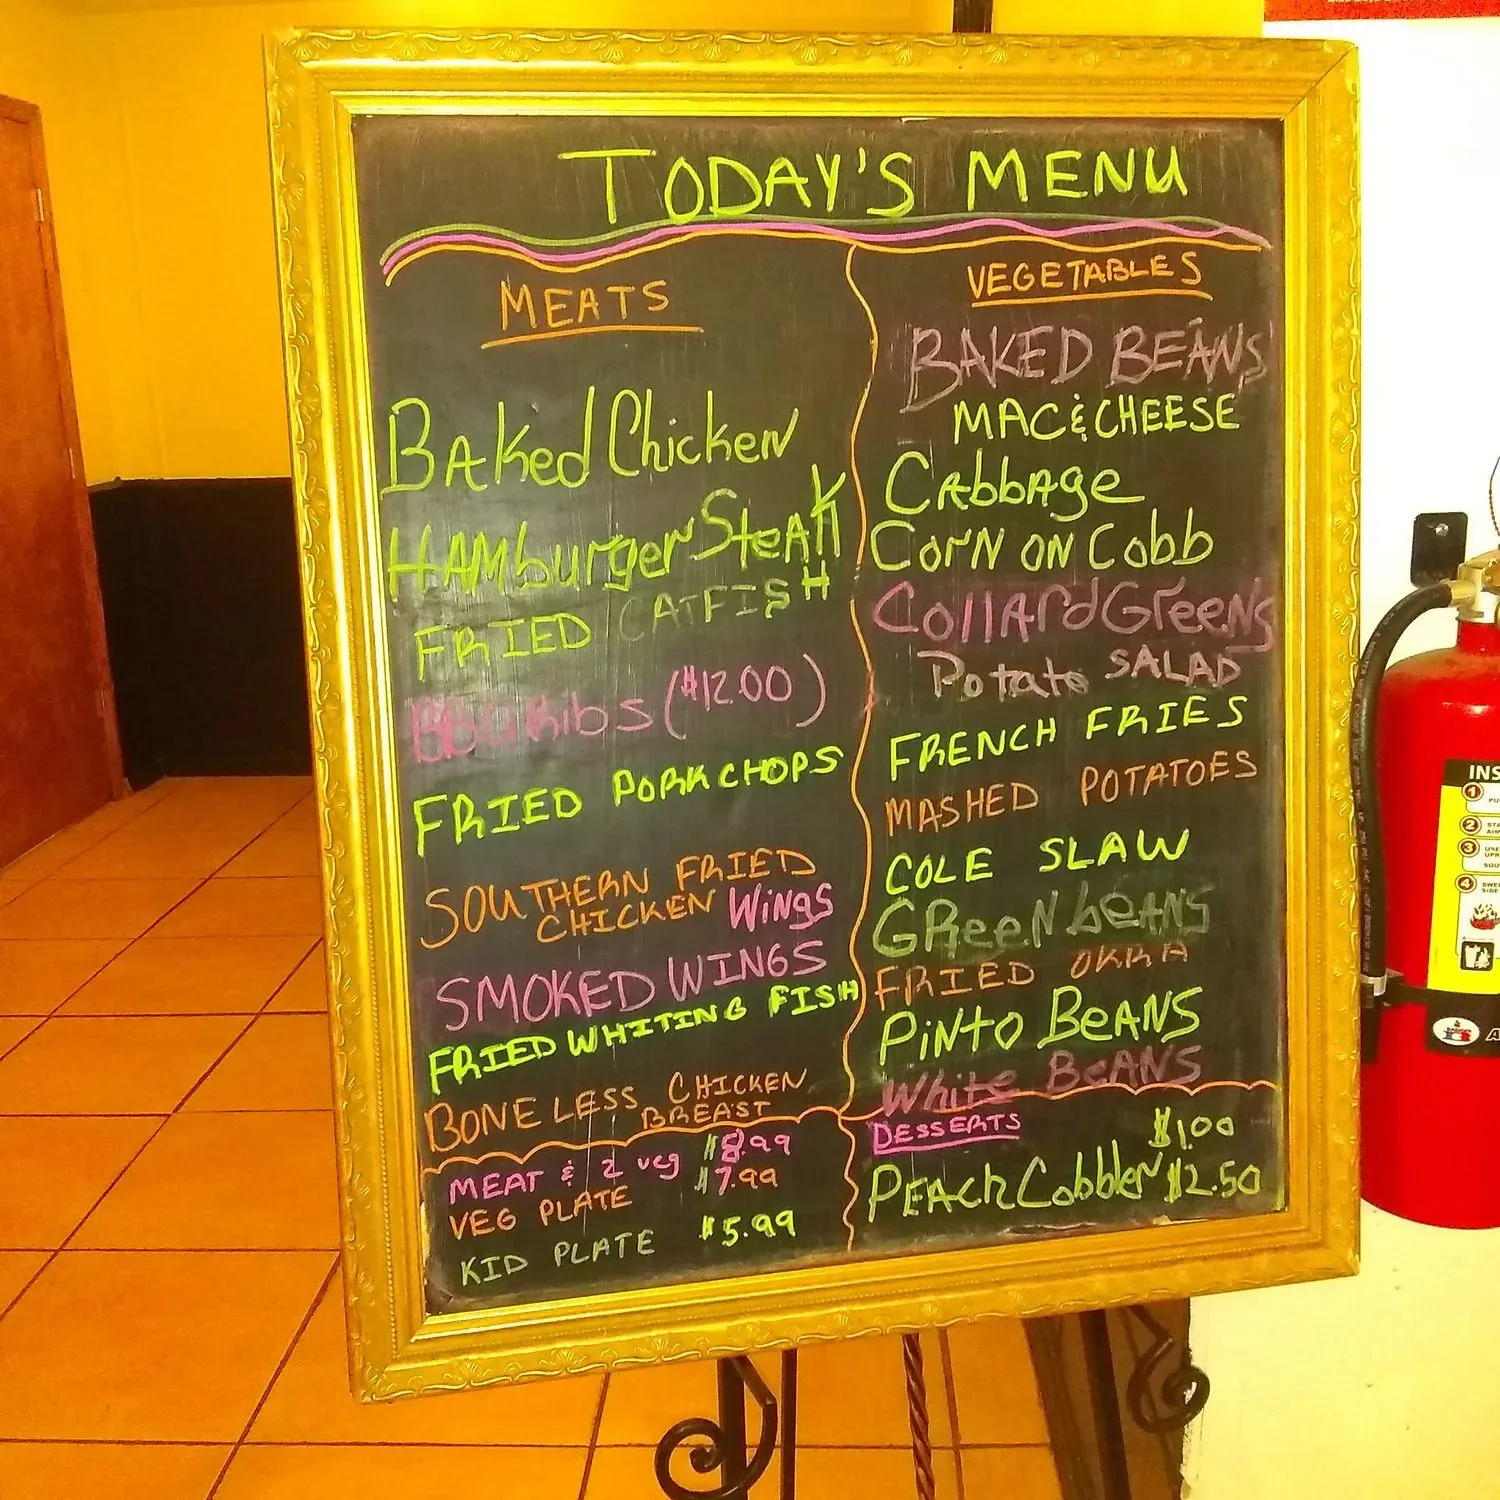 TODAY'S MENU
MEATS
Baked Chicken
Hamburger Steak
FRIED CATFISH
BBQ Ribs ($12.00)
FRIED PORKCHOPS
SOUTHERN FRIED
CHICKEN Wings
SMOKED WINGS
FRIED WHITING FISH
BONELESS CHICKEN
BREAST
MEAT & 2 veg $8.99
VEG PLATE $7.99
KID PLATE $5.99
VEGETABLES
BAKED BEANS
MAC & CHEESE
Cabbage
Corn on Cobb
Collard Greens
Potato SALAD
FRENCH FRIES
MASHED POTATOES
COLE SLAW
Green beans
FRIED OKRA
Pinto Beans
White Beans
DESSERTS
$1.00
Peach Cobbler $2.50
INS
1
2
3
4